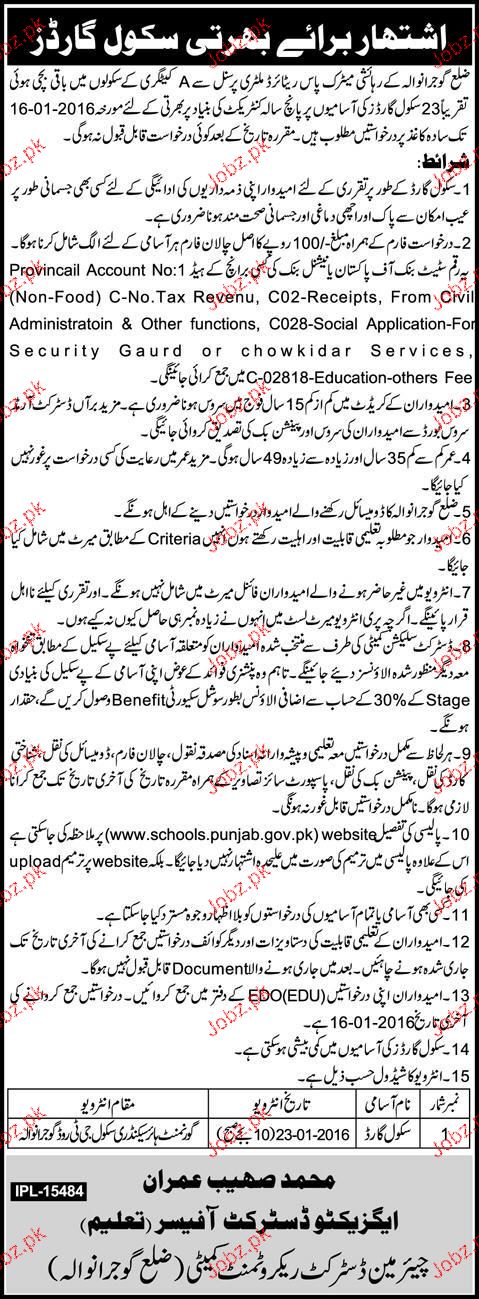 اشتہار برائے بھرتی سکول گارڈز
ضلع گوجرانوالہ کے رہائشی میٹرک پاس ریٹائرڈ ملٹری پرسنل سے A کیٹگری کے سکولوں میں باقی بچی ہوئی
تقریباً 23 سکول گارڈز کی آسامیوں پر پانچ سالہ کنٹریکٹ کی بنیاد پر بھرتی کے لئے مورخہ 16-01-2016
تک سادہ کاغذ پر درخواستیں مطلوب ہیں۔ مقررہ تاریخ کے بعد کوئی درخواست قابل قبول نہ ہوگی۔
شرائط:
1۔ سکول گارڈ کے طور پر تقرری کے لئے امیدوار اپنی ذمہ داریوں کی ادائیگی کے لئے کسی بھی جسمانی طور پر
عیب امکان سے پاک اور اچھی دماغی اور جسمانی صحت مند ہونا ضروری ہے۔
2۔ درخواست فارم کے ہمراہ مبلغ -/100 روپے کا اصل چالان فارم ہر آسامی کے لئے الگ شامل کرنا ہوگا۔
یہ رقم سٹیٹ بنک آف پاکستان یا نیشنل بنک کی کسی برانچ کے ہیڈ Provincail Account No:1
(Non-Food) C-No.Tax Revenu, C02-Receipts, From Civil
Administratoin & Other functions, C028-Social Application-For
Security Gaurd or chowkidar Services,
C-02818-Education-others Fee میں جمع کرائی جائیگی۔
3۔ امیدواران کے کریڈٹ میں کم از کم 15 سال فوج میں سروس ہونا ضروری ہے۔ مزید برآں ڈسٹرکٹ آرمڈ
سروس بورڈ سے امیدواران کی سروس اور پینشن بک کی تصدیق کروائی جائیگی۔
4۔ عمر کم سے کم 35 سال اور زیادہ سے زیادہ 49 سال ہوگی۔ مزید عمر میں رعایت کی کسی درخواست پر غور نہیں
کیا جائیگا۔
5۔ ضلع گوجرانوالہ کا ڈومیسائل رکھنے والے امیدوار درخواستیں دینے کے اہل ہونگے۔
6۔ امیدوار جو مطلوبہ تعلیمی قابلیت اور اہلیت رکھتے ہوں انہیں Criteria کے مطابق میرٹ میں شامل کیا
جائیگا۔
7۔ انٹرویو میں غیر حاضر ہونے والے امیدواران فائنل میرٹ میں شامل نہیں ہونگے۔ اور تقرری کیلئے نااہل
قرار پائینگے۔ اگرچہ پری انٹرویو میرٹ لسٹ میں انہوں نے زیادہ نمبر ہی حاصل کیوں نہ کیے ہوں۔
8۔ ڈسٹرکٹ سلیکشن کمیٹی کی طرف سے منتخب شدہ امیدواران کو متعلقہ آسامی کیلئے پے سکیل کے مطابق تنخواہ
معہ دیگر منظور شدہ الاؤنسز دیئے جائینگے۔ تاہم وہ پنشنری فوائد کے عوض اپنی آسامی کے پے سکیل کی بنیادی
Stage کے 30% کے حساب سے اضافی الاؤنس بطور سوشل سکیورٹی Benefit وصول کریں گے، حقدار
ہونگے۔
9۔ ہر لحاظ سے مکمل درخواستیں معہ تعلیمی و پیشہ وارانہ اسناد کی مصدقہ نقول، چالان فارم، ڈومیسائل کی نقل، شناختی
کارڈ کی نقل، پینشن بک کی نقل، پاسپورٹ سائز تصاویر کے ہمراہ مقررہ تاریخ کی آخری تاریخ تک جمع کرانا
لازمی ہوگا۔ نامکمل درخواستیں قابل غور نہ ہونگی۔
10۔ پالیسی کی تفصیل website (www.schools.punjab.gov.pk) پر ملاحظہ کی جاسکتی ہے
اس کے علاوہ پالیسی میں ترمیم کی صورت میں علیحدہ اشتہار نہیں دیا جائیگا۔ بلکہ website پر ترمیم upload
کی جائیگی۔
11۔ کسی بھی آسامی یا تمام آسامیوں کی درخواستوں کو بلا اظہار وجوہ مسترد کیا جاسکتا ہے۔
12۔ امیدواران کے تعلیمی قابلیت کی دستاویزات اور دیگر کوائف درخواستیں جمع کرانے کی آخری تاریخ تک
جاری شدہ ہونے چاہئیں۔ بعد میں جاری ہونے والا Document قابل قبول نہیں ہوگا۔
13۔ امیدواران اپنی درخواستیں EDO(EDU) کے دفتر میں جمع کروائیں۔ درخواستیں جمع کروانے کی
آخری تاریخ 16-01-2016 ہے۔
14۔ سکول گارڈز کی آسامیوں میں کمی بیشی ہوسکتی ہے۔
15۔ انٹرویو کا شیڈول حسب ذیل ہے۔
نمبر شمار نام آسامی تاریخ انٹرویو مقام انٹرویو
1 سکول گارڈ 23-01-2016 (10 بجے صبح) گورنمنٹ ہائر سیکنڈری سکول جی ٹی روڈ گوجرانوالہ
محمد صہیب عمران
IPL-15484
ایگزیکٹو ڈسٹرکٹ آفیسر (تعلیم)
چیئرمین ڈسٹرکٹ ریکروٹمنٹ کمیٹی (ضلع گوجرانوالہ)
Jobz.pk